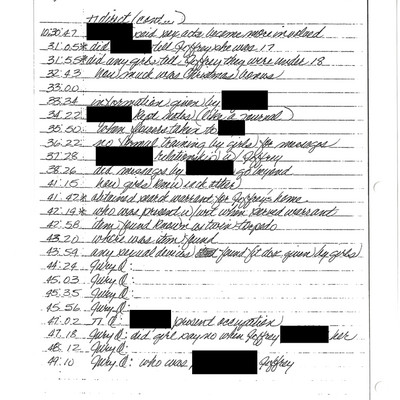 π direct (cont...)
10:30:47 said sex acts became more involved
31:05* did tell Jeffrey she was 17
31:55* did any girls tell Jeffrey they were under 18
32:43 how much was Christmas bonus
33:00
33:34 information given by
34:22 kept notes (like a journal)
35:50 taken to
36:22 no formal training by girls for massages
37:28 relationship w/ Jeffrey
38:26 did massages by go beyond
41:15 how girls knew each other
41:47* obtained search warrant for Jeffrey's home
42:19* who was present w/ wit when served warrant
42:58 item found known as twin torpedo
43:20 where was item found
43:54 any sexual devices found fit desc given by girls
44:24 Jury Q:
45:03 Jury Q:
45:35 Jury Q:
45:56 Jury Q:
47:02 π Q: present occupation
47:18 Jury Q: did girl say no when Jeffrey her
48:12 Jury Q:
49:10 Jury Q: who was Jeffrey